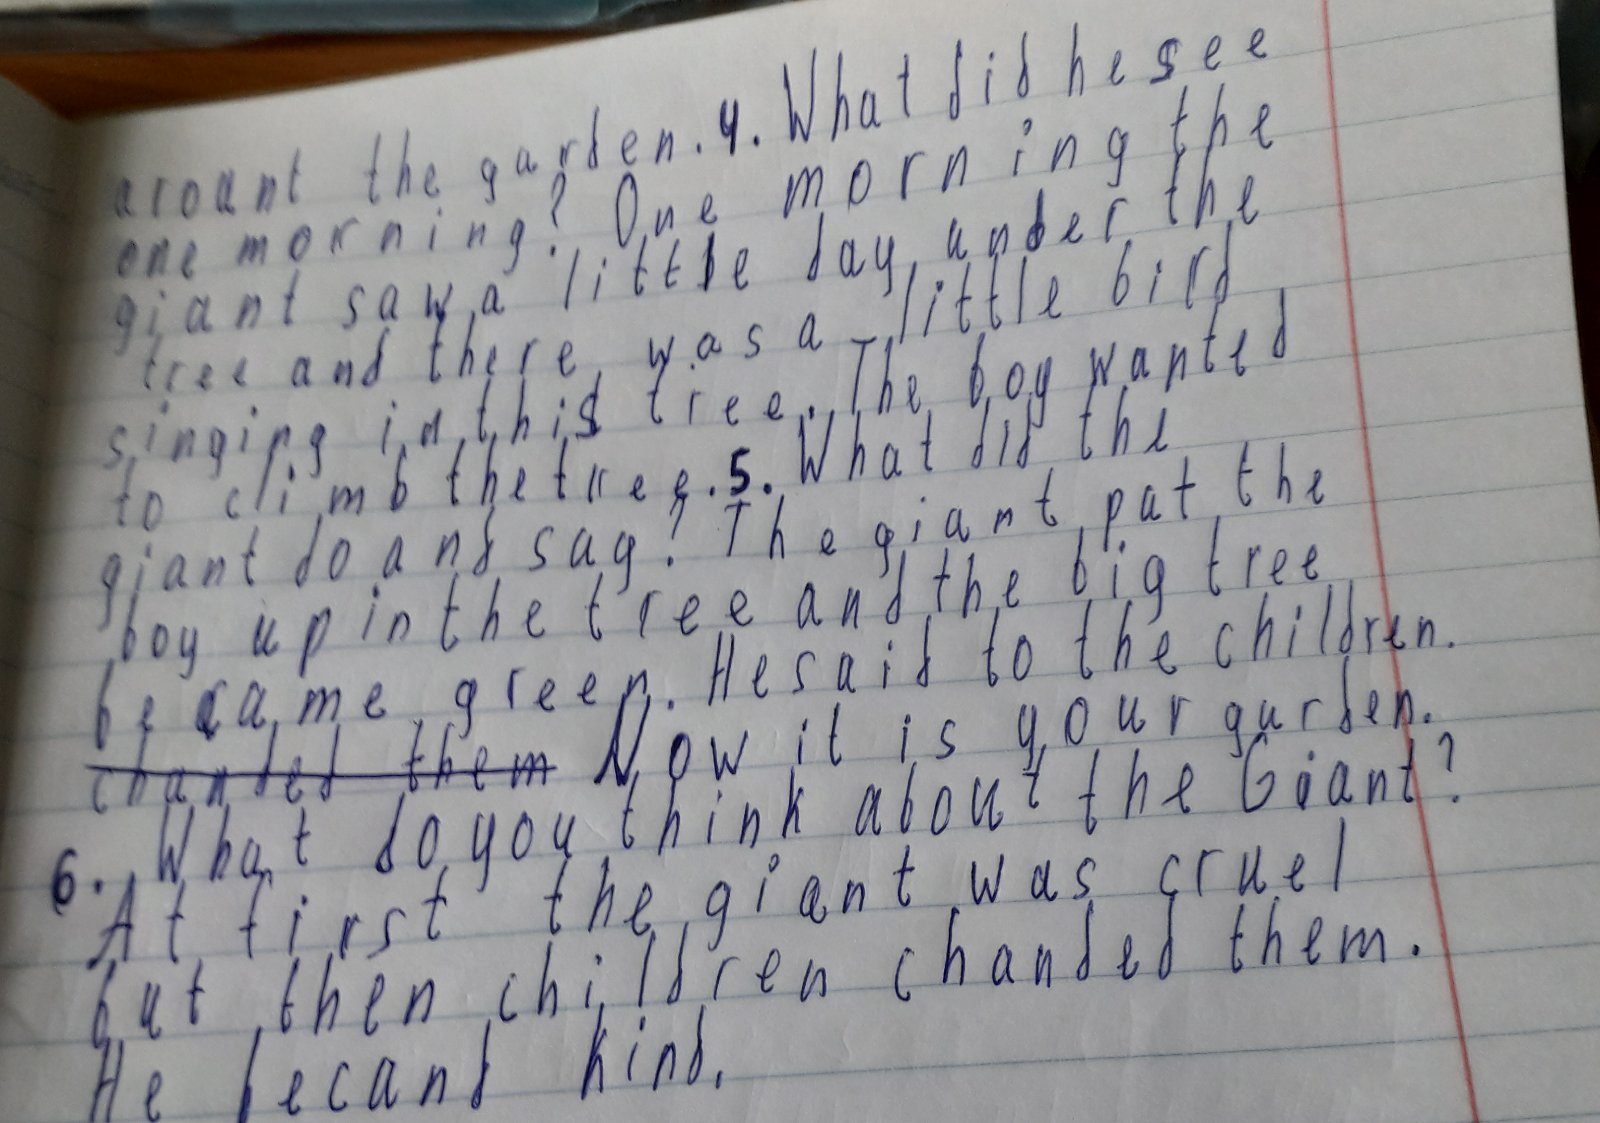 arount the garden. 4. What did he see
one morning? One morning the
giant saw a little day under the
tree and there was a little bird
singing in this tree. The boy wanted
to climb the tree. 5. What did the
giant do and say? The giant put the
boy up in the tree and the big tree
became green. He said to the children.
chanded them Now it is your gurden.
6. What do you think about the Giant?
At first the giant was cruel
but then children chanded them.
He becand kind.